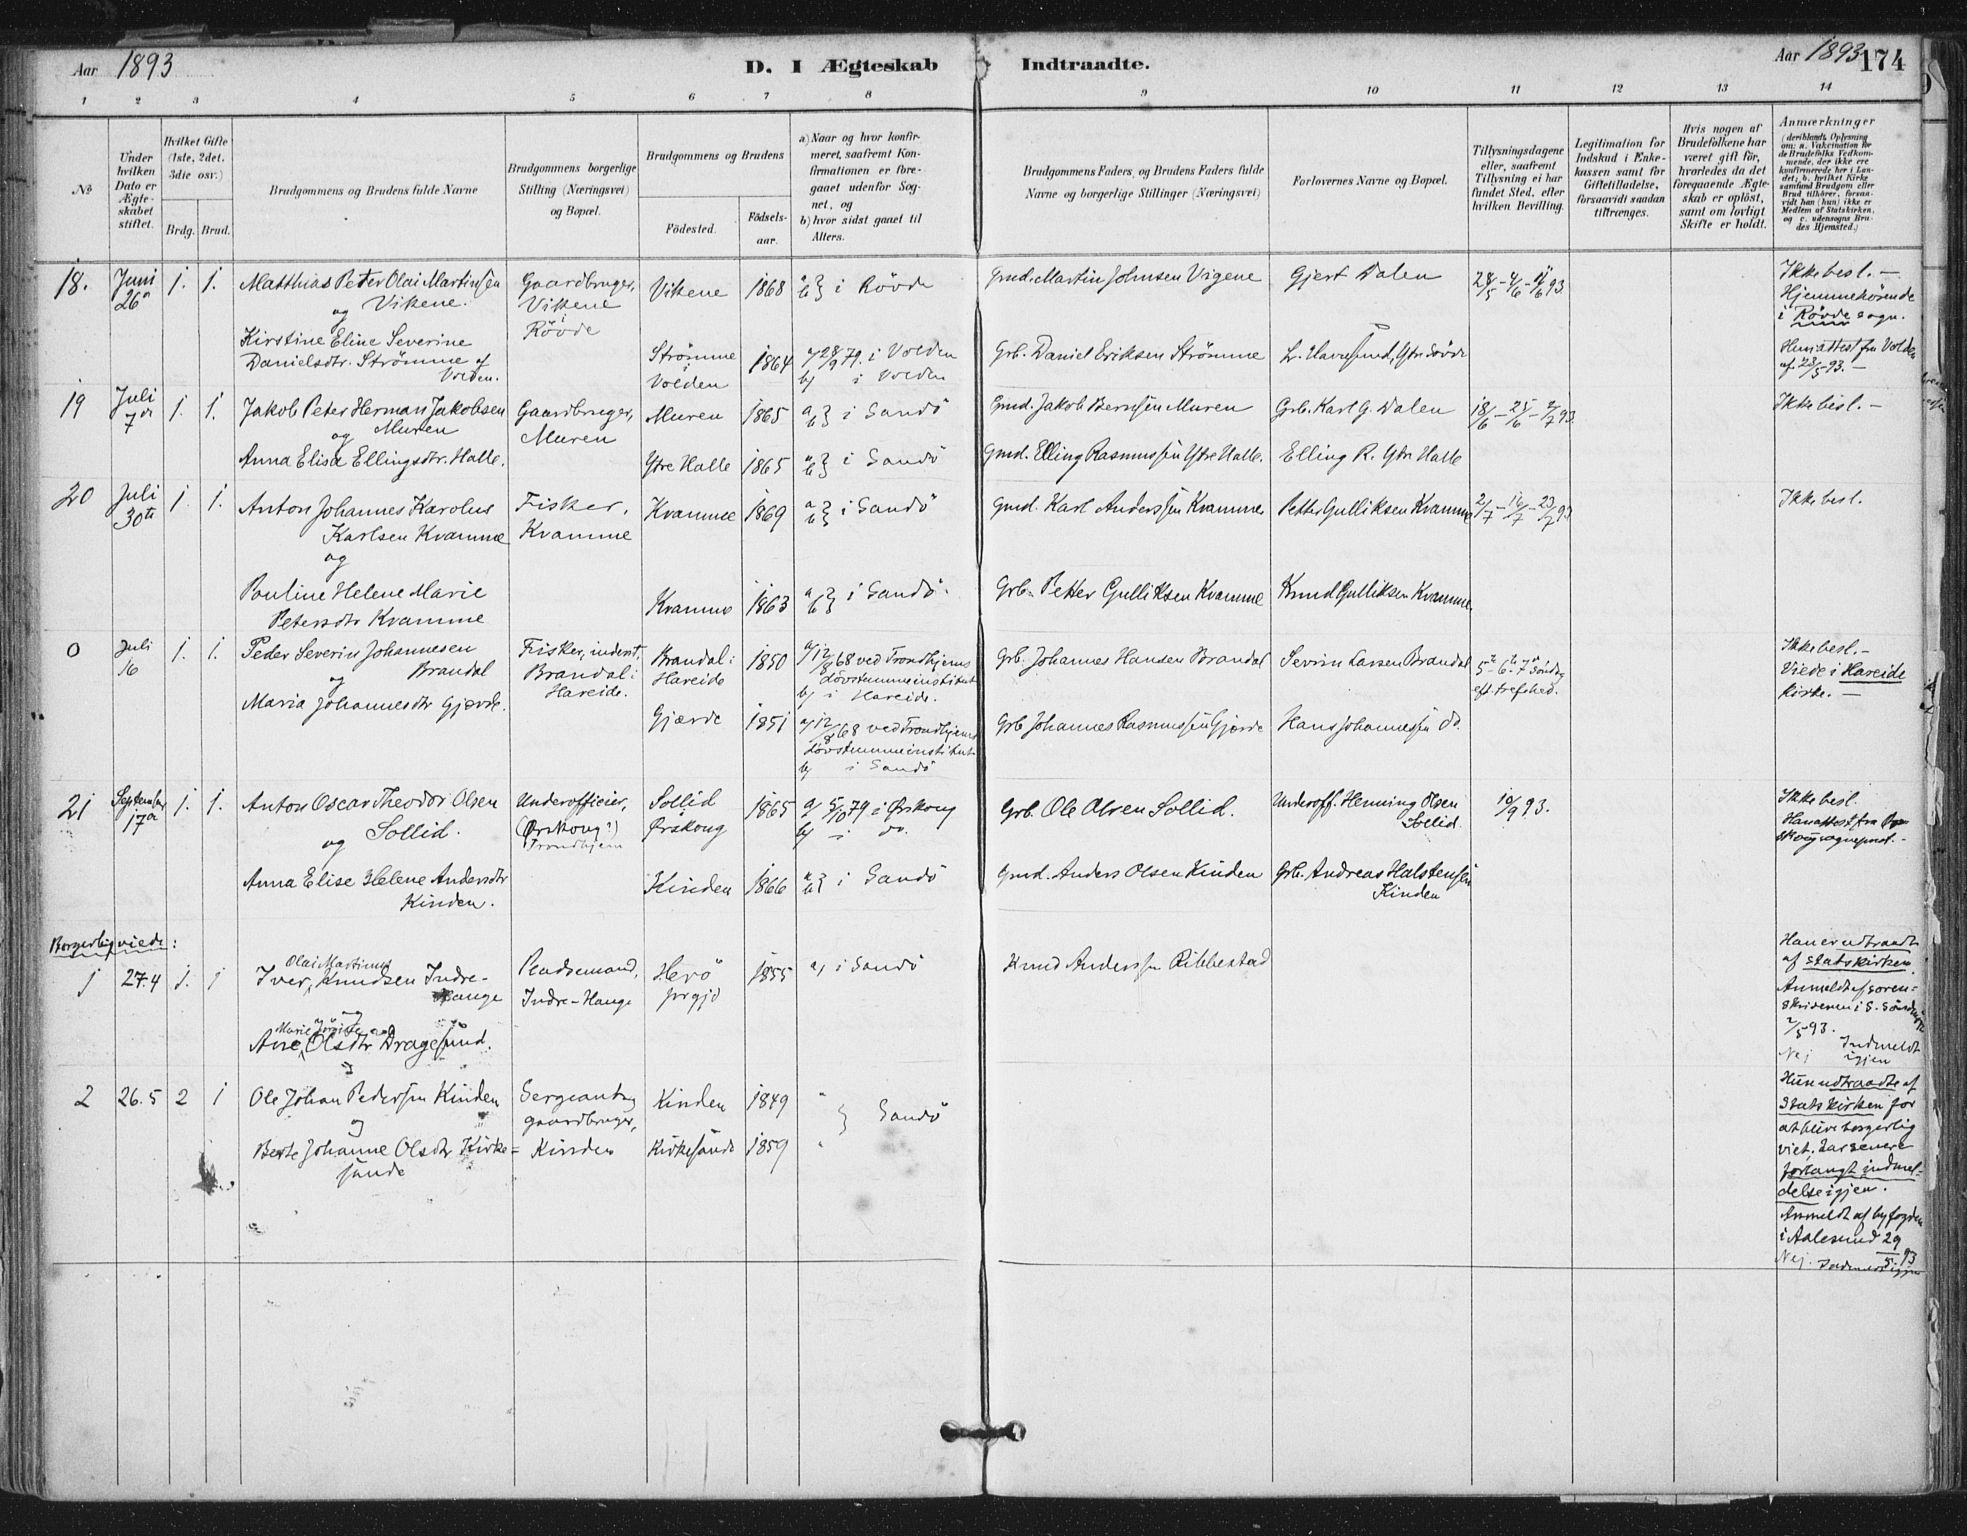 Aar 1893
D. I Ægteskab Indtraadte.
Aar 1893
174
1 2 3 4 5 6 7 8 9 10 11 12 13 14
No
Under hvilken Dato er Ægteskabet stiftet.
Hvilket Gifte (1ste, 2det, 3die osv.)
Brdg. Brud.
Brudgommens og Brudens fulde Navne
Brudgommens borgerlige Stilling (Næringsvei) og Bopæl.
Brudgommens og Brudens
Födested.
Födsels-aar.
a) Naar og hvor konfirmeret, saafremt Konfirmationen er foregaaet udenfor Sognet, og
b) hvor sidst gaaet til Alters.
Brudgommens Faders, og Brudens Faders fulde Navne og borgerlige Stillinger (Næringsvei)
Forlovernes Navne og Bopæl.
Tillysningsdagene eller, saafremt Tillysning ei har fundet Sted, efter hvilken Bevilling.
Legitimation for Indskud i Enkekassen samt for Giftetilladelse, forsaavidt saadan tiltrænges.
Hvis nogen af Brudefolkene har været gift för, hvorledes da det foregaaende Ægteskab er oplöst, samt om lovligt Skifte er holdt.
Anmærkninger (deriblandt Oplysning om: a. Vakcination for de Brudefolks Vedkommende, der ikke ere konfirmerede her i Landet; b. hvilket Kirkesamfund Brudgom eller Brud tilhörer, forsaavidt han (hun) ikke er Medlem af Statskirken, og c. udensogns Brudes Hjemsted.)
18. Juni 26 1. 1. Matthias Peter Olai Martinsen Vikene. Gaardbruger, Vikene i Rövde Vikene 1868 a b} i Rövde Gmd. Martin Johnsen Vigene Gjert Dalen 28/5 - 4/6 - 11/6 93. Ikke besl. — Hjemmehörende i Rövde sogn.
og
Kirstine Eline Severine Danielsdtr. Strömme af Volden. Strömme i Volden 1864 a) 28/9 79. i Volden b) i Volden Grb. Daniel Eriksen Strömme Hunattest fra Volden af 23/5 93. —
19 Juli 7de 1. 1. Jakob Peter Herman Jakobsen Muren Gaardbruger, Muren Muren 1865 a b} i Sandö Gmd. Jakob Berntsen Muren Grb. Karl G. Dalen 18/6 - 25/6 - 2/7 93. Ikke besl. —
og
Anna Elisa Ellingsdtr. Halle. Ytre Halle 1865 a b} i Sandö Gmd. Elling Rasmussen Ytre Halle. Elling R. Ytre Halle
20 Juli 30te 1. 1. Anton Johannes Karolus Karlsen Kvamme Fisker, Kvamme Kvamme 1869 a b} i Sandö Gmd. Karl Anderssen Kvamme Petter Gulliksen Kvamme 2/7 - 16/7 - 23/7 93 Ikke besl.
og
Pauline Helene Marie Petersdtr Kvamme Kvamme 1863 a b} i Sandö. Grb. Petter Gulliksen Kvamme Knud Gulliksen Kvamme
0 Juli 16 1. 1. Peder Severin Johannesen Brandal Fisker, inderst, Brandal i Hareide. Brandal i Hareide 1850 a) 12/8 68 ved Trondhjems dövstummeinstitut b) i Hareide. Grb. Johannes Hansen Brandal Severin Larsen Brandal 5te - 6te - 7de Söndag eft. trefohed. Ikke besl. — Viede i Hareide kirke. —
og
Maria Johannesdtr Gjærde. Gjærde 1851 a) 12/8 68 ved Trondhjems dövstummeinstitut b) i Sandö Grb Johannes Rasmussen Gjærde Hans Johannessen do.
21 September 17de 1. 1. Anton Oscar Theodor Olsen Sollid. Underofficier, (Ørskoug?) Trondhjem Sollid Ørskoug 1865 a) 5/10 79 i Ørskoug b) i do. Grb. Ole Olsen Sollid. Underoff. Henning Olsen Solid. 10/9 93. Ikke besl. Hanattest fra Ørskoug sogneprest. —
og
Anna Elise Helene Andersdtr Kinden. Kinden 1866 a b} i Sandö Gmd. Anders Olsen Kinden Grb. Andreas Halstensen Kinden
Borgerlig viede:
1 27.4 1. 1 Iver Olai Martinus Knudsen Indre-Hauge Indre-Hauge Herö prgjd 1855 a) i Sandö Knud Anderssen Ribbestad Han er udtraadt af statskirken. Anmeldt af sorenskriveren i S. Söndmör 2/5 93. Nej Indmeldt igjen
og
Ane Olsdtr Dragesund.
2 26.5 2 1 Ole Johan Pedersen Kinden Sergeant og gaardbruger, Kinden Kinden 1849 } Sandö Hun udtraadte af Statskirken for at blive borgerlig viet, har senere forlangt indmeldelse igjen. Anmeldt af byfogden i Aalesund 29/5 93 Nej. Indmeldt igjen
og
Berte Johanne Olsdtr Kirkesunde Kirkesunde 1859